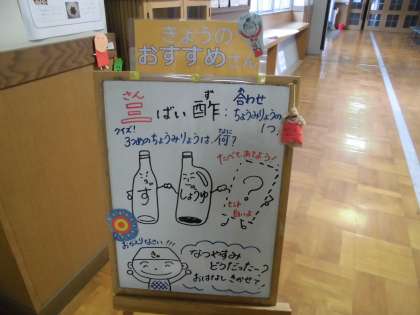 きょうの
おすすめさん
さん ず
三ばい酢：合わせ
ちょうみりょうの
1つ。
クイズ！
3つめのちょうみりょうは、何？
たべて、あてよう！
す
しょうゆ
？
ヒント
白いよ
おかえりなさい!!!
なつやすみ
どうだった～？
おはなし きかせて！